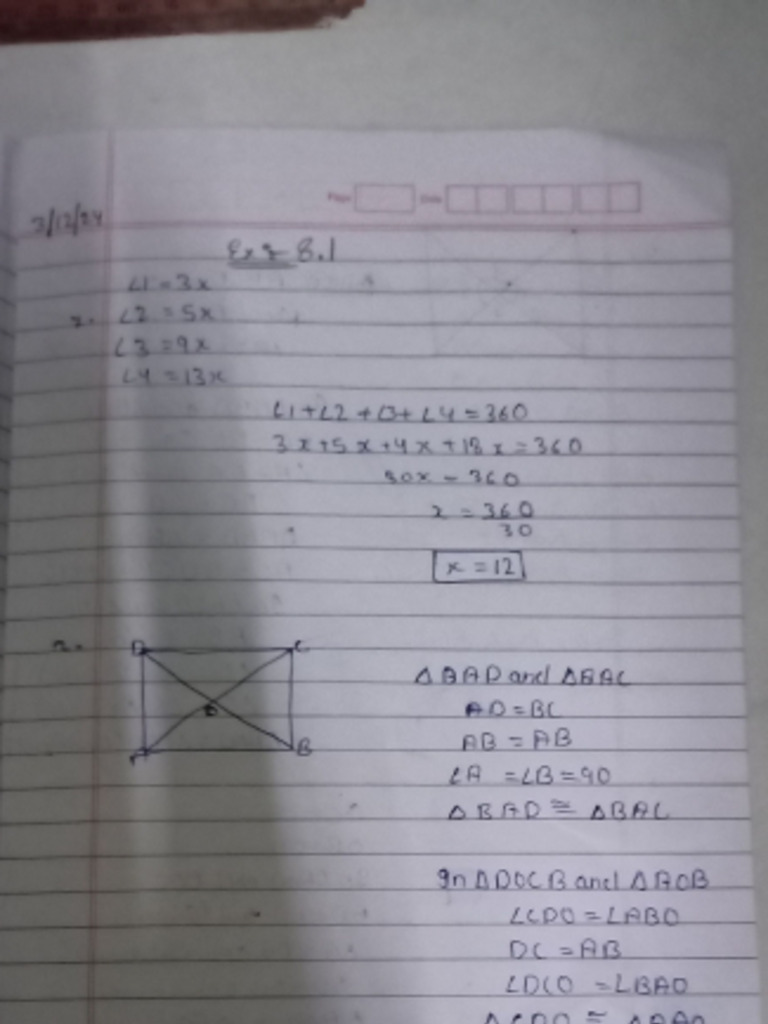 3/12/24
Ex 8.1
∠1 = 3x
2. ∠2 = 5x
∠3 = 9x
∠4 = 13x
∠1+∠2+∠3+∠4=360
3x+5x+4x+18x=360
30x = 360
x = 360
30
x = 12
2.
D C
O
A B
△BAD and △BAC
AD = BC
AB = AB
∠A = ∠B = 90
△BAD ≅ △BAC
In △DOCB and △AOB
∠CDO = ∠ABO
DC = AB
∠DCO = ∠BAO